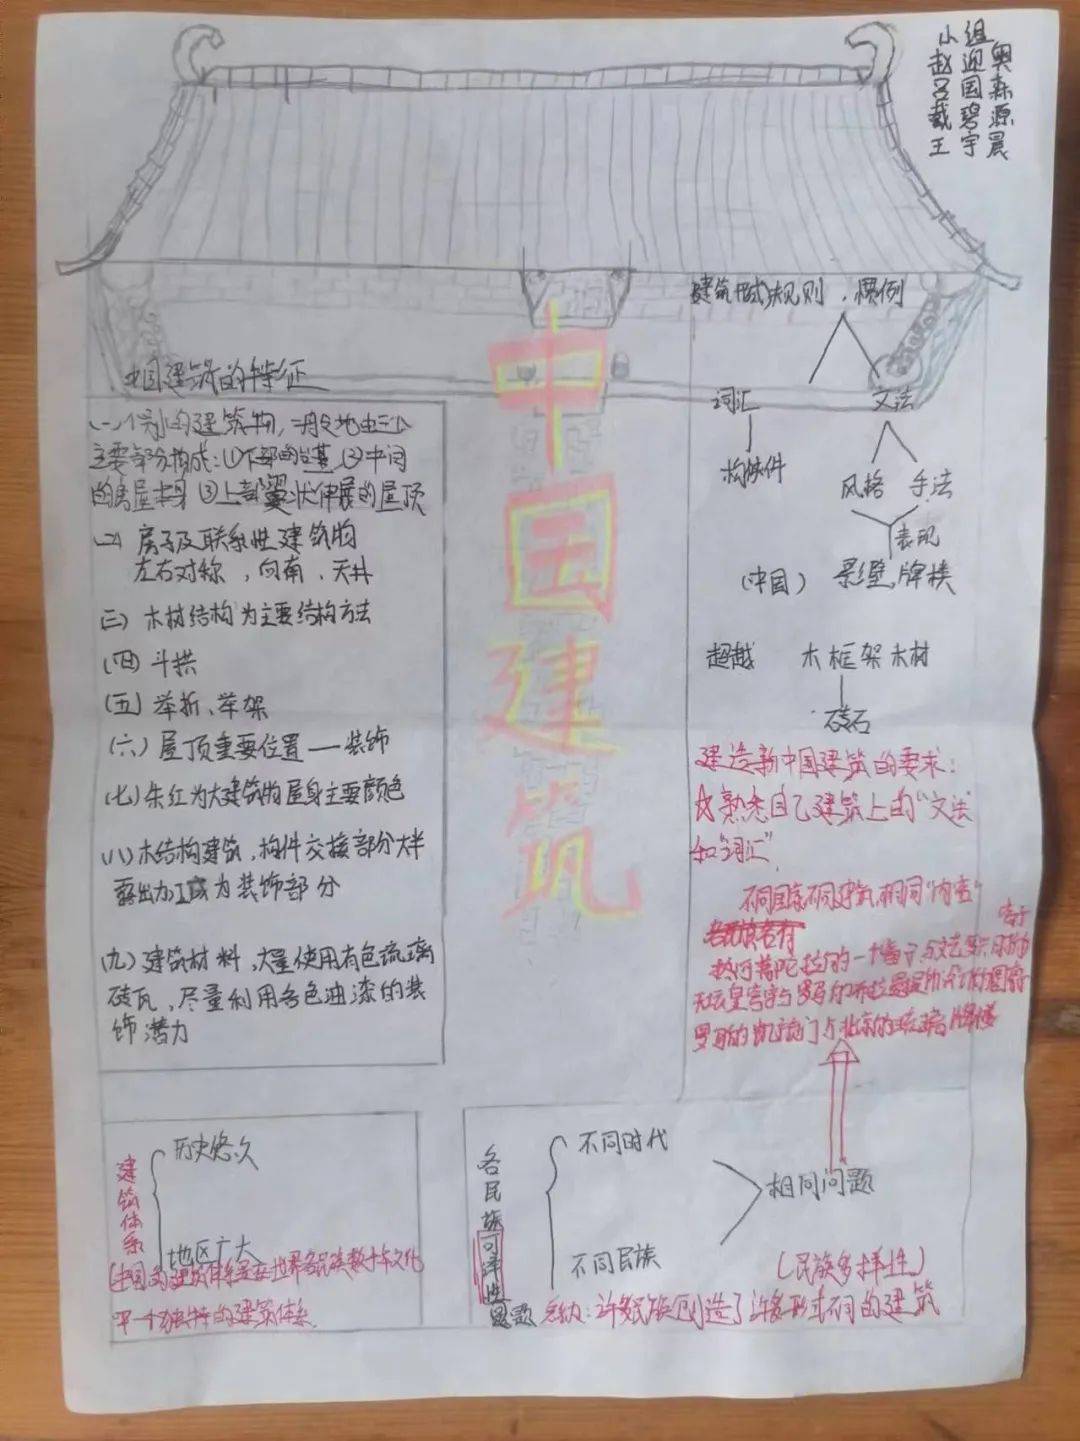 小组
赵迎奥
吕国森
戴碧源
王宇晨
中国建筑
中国建筑的特征
(一)个别的建筑物,一般地由三个
主要部分构成:(1)下部的台基(2)中间
的房屋本身(3)上部翼状伸展的屋顶
(二)房子及联系性建筑物
左右对称,向南,天井
(三)木材结构为主要结构方法
(四)斗拱
(五)举折、举架
(六)屋顶重要位置——装饰
(七)朱红为大建筑物屋身主要颜色
(八)木结构建筑,构件交接部分大半
露出加工成为装饰部分
(九)建筑材料,大量使用有色琉璃
砖瓦,尽量利用各色油漆的装
饰潜力
建筑形式规则,惯例
词汇 文法
构件
风格 手法
表现
(中国) 影壁,牌楼
超越 木框架木材
砖石
建造新中国建筑的要求:
熟悉自己建筑上的"文法
和"词汇"
不同国家不同建筑,相同"内容"
热河普陀拉的一个窗子与文艺复兴时期的窗子
天坛皇穹宇与罗马的
罗马的凯旋门与北京的琉璃牌楼
建筑体系
历史悠久
地区广大
(中国的建筑体系是在世界各民族数千年文化
中一个独特的建筑体系
各民族可译性问题
不同时代
不同民族
相同问题
(民族多样性)
总结:许多民族创造了许多形式不同的建筑